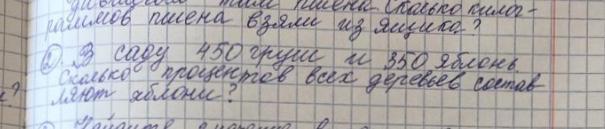 пшена. Сколько килог-
раммов пшена взяли из ящика?
2. В саду 450 груш и 350 яблонь
Сколько процентов всех деревьев состав
ляют яблони?